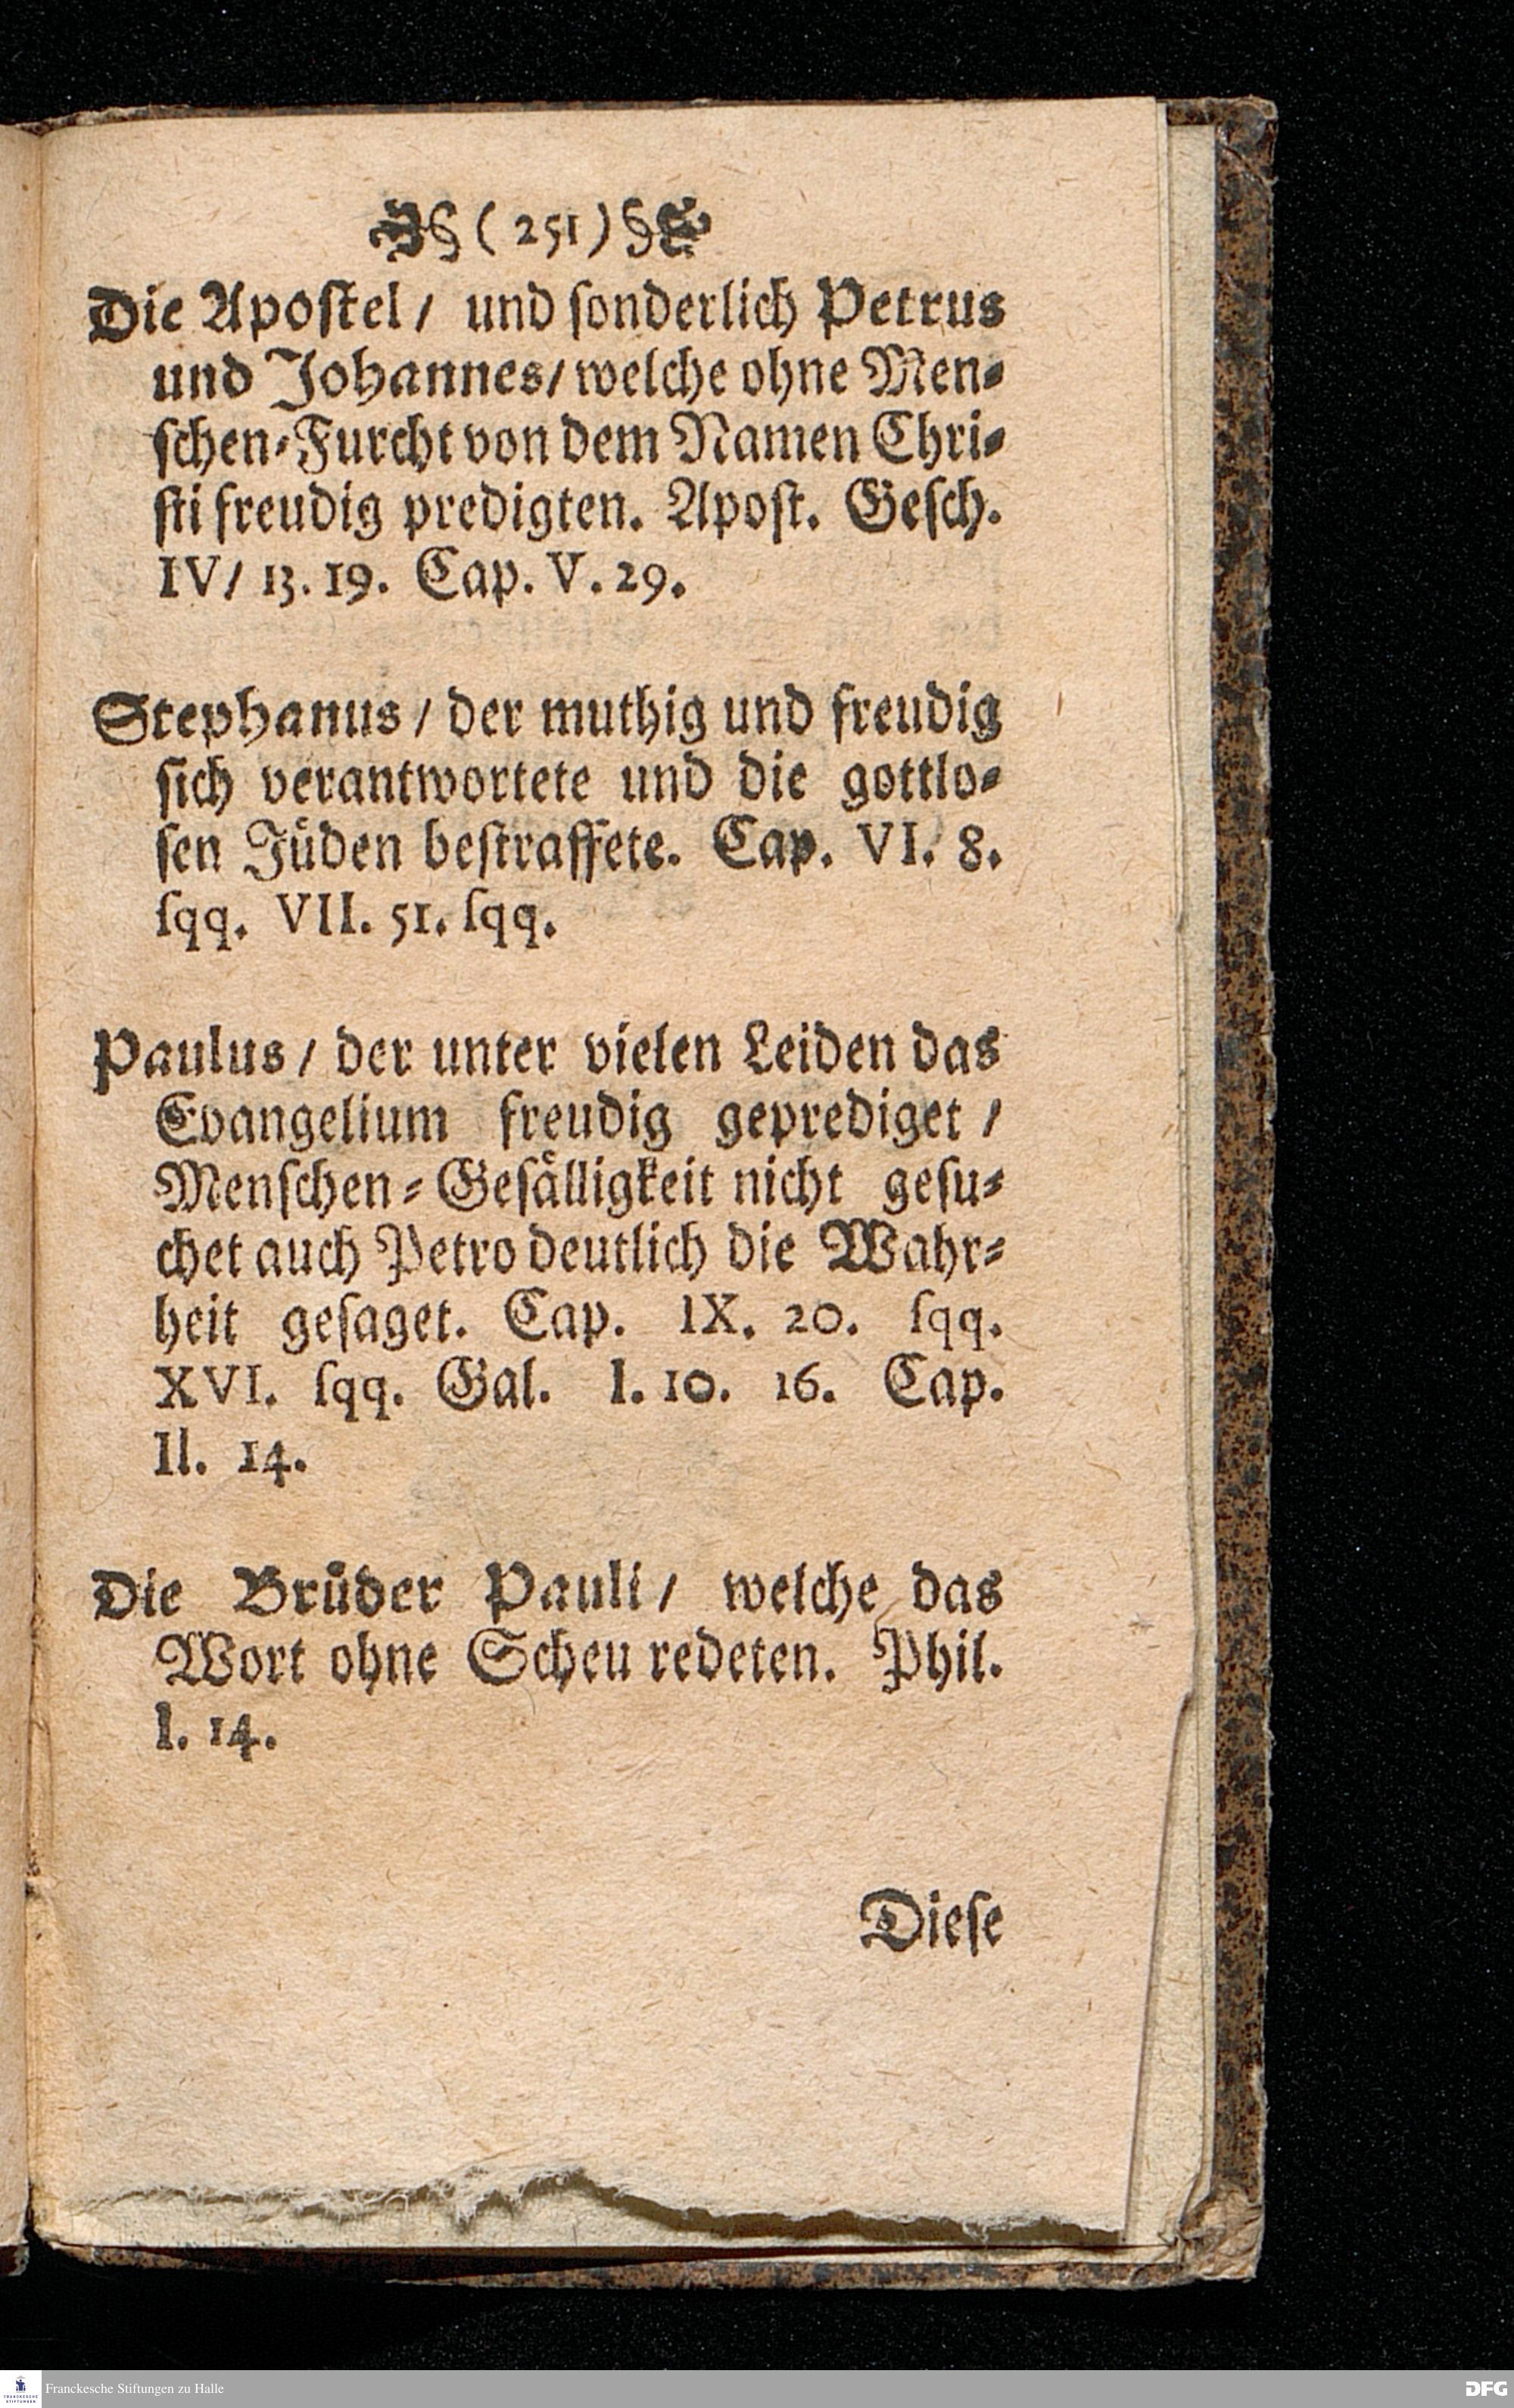 § ( 251 ) §
Die Apoſtel / und ſonderlich Petrus
und Johannes / welche ohne Men-
ſchen-Furcht von dem Namen Chri-
ſti freudig predigten. Apoſt. Geſch.
IV / 13. 19. Cap. V. 29.
Stephanus / der muthig und freudig
ſich verantwortete und die gottlo-
ſen Juͤden beſtraffete. Cap. VI. 8.
ſqq. VII. 51. ſqq.
Paulus / der unter vielen Leiden das
Evangelium freudig geprediget /
Menſchen-Gefaͤlligkeit nicht geſu-
chet auch Petro deutlich die Wahr-
heit geſaget. Cap. IX. 20. ſqq.
XVI. ſqq. Gal. I. 10. 16. Cap.
II. 14.
Die Bruͤder Pauli / welche das
Wort ohne Scheu redeten. Phil.
I. 14.
Dieſe
FRANCKESCHE
STIFTUNGEN
Franckesche Stiftungen zu Halle
DFG